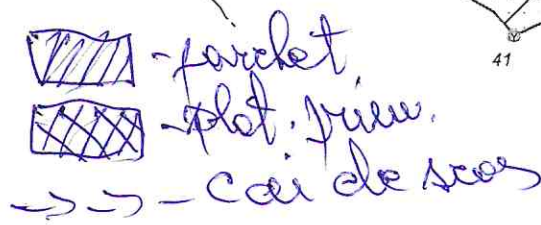 41
- parchet
- plat. prim.
- Căi de scos